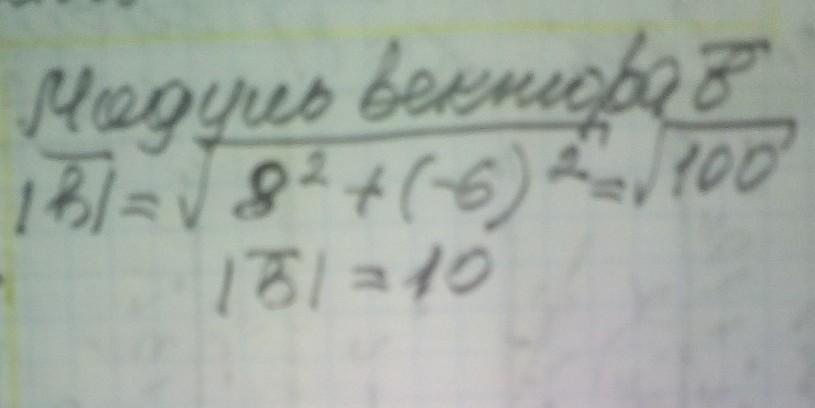 Модуль вектора b̅
|b̅| = √8² + (-6)² = √100
|b̅| = 10